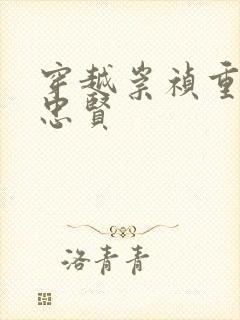 穿越崇祯重
忠贤
洛青青